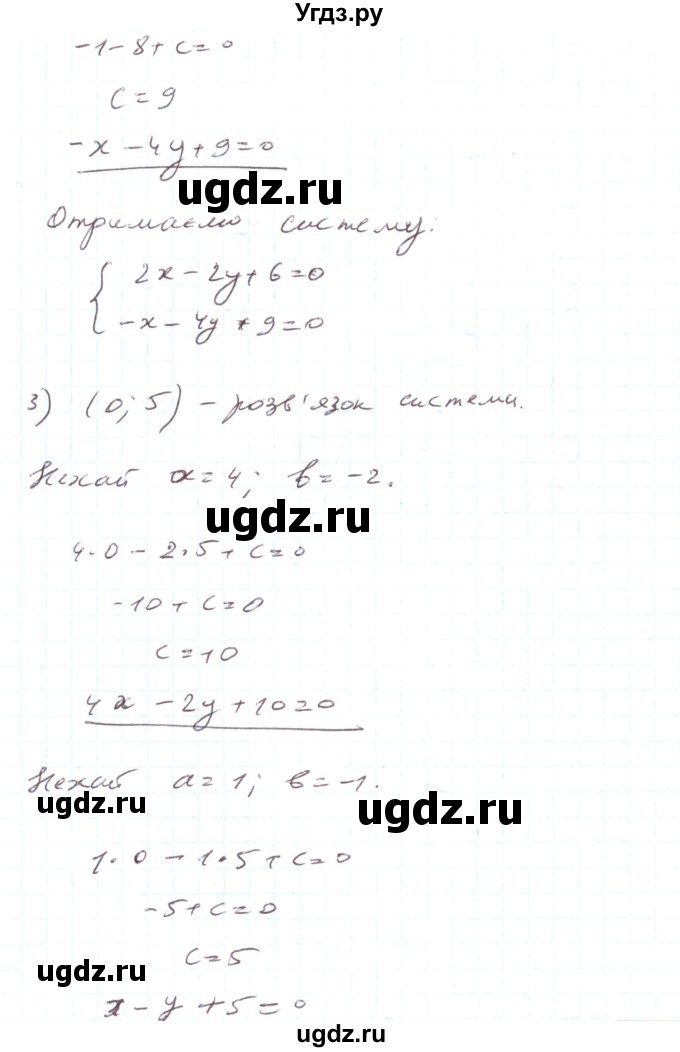 Угдз.ру
-1-8+c=0
c=9
-x-4y+9=0
ugdz.ru
Отримаємо систему:
2x-2y+6=0
-x-4y+9=0
3) (0; 5) - розв'язок системи.
Нехай a=4; b=-2.
ugdz.ru
4·0-2·5+c=0
-10+c=0
c=10
4x-2y+10=0
Нехай a=1; b=-1.
ugdz.ru ugdz.ru
1·0-1·5+c=0
-5+c=0
c=5
ugdz.ru
x-y+5=0
ugdz.ru